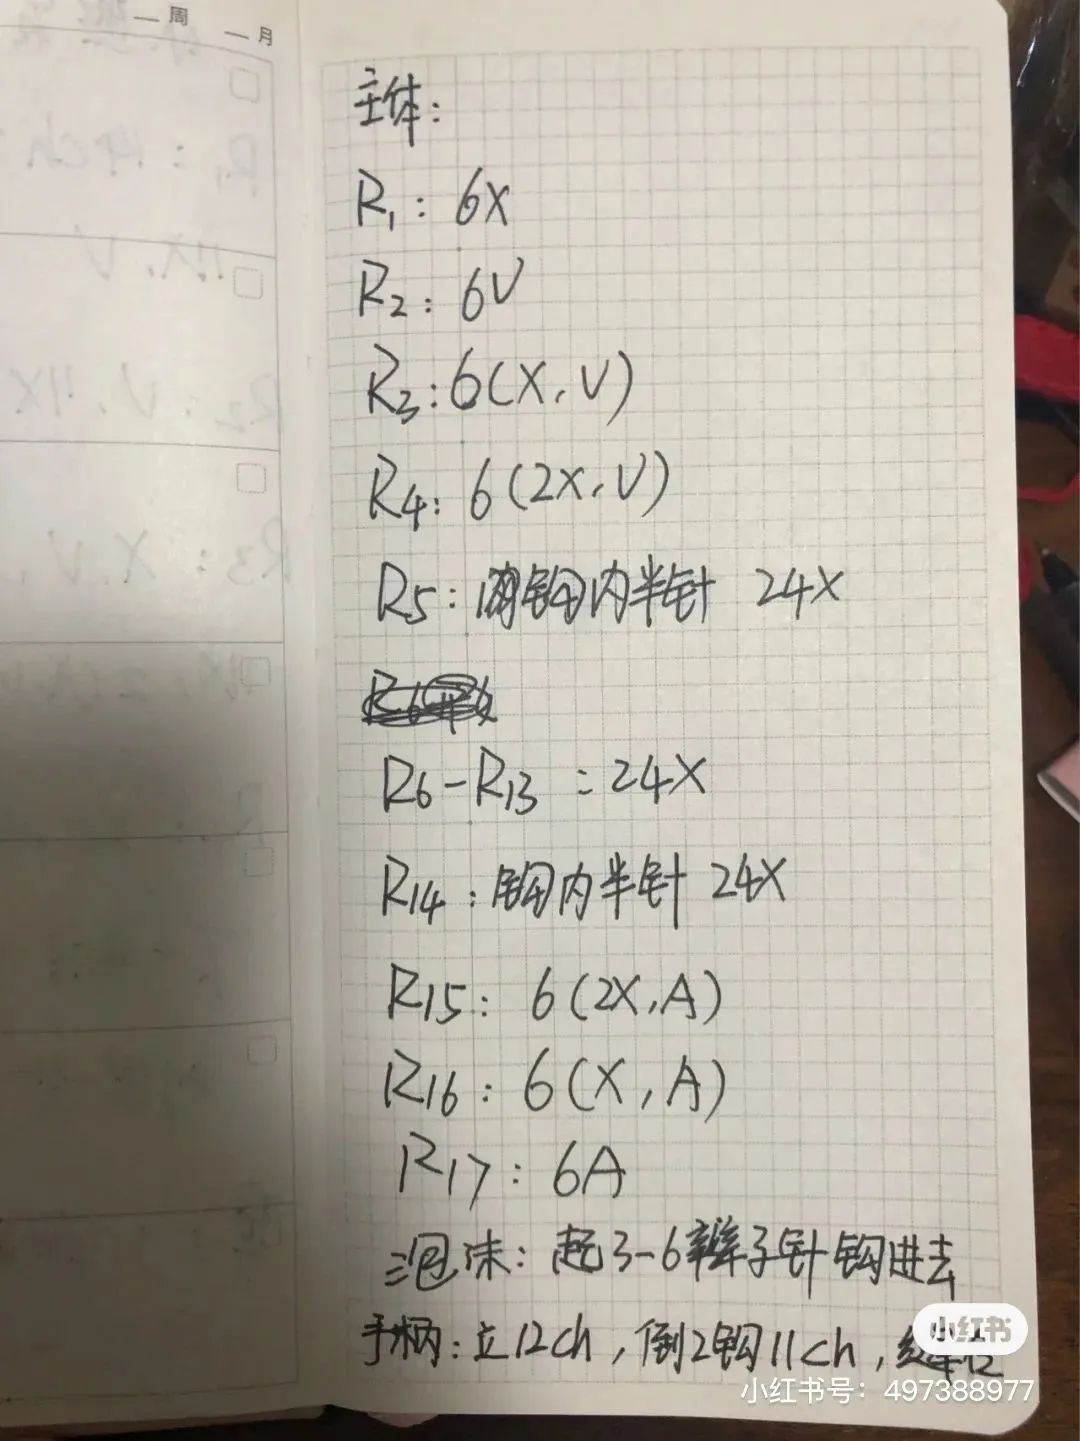 一周
一月
主体：
R1：6X
R2：6V
R3：6(X，V)
R4：6(2X，V)
R5：钩内半针 24X
R6-R13：24X
R14：钩内半针 24X
R15：6(2X，A)
R16：6(X，A)
R17：6A
泡沫：起3-6辫子针钩进去
手柄：立12ch，倒2钩11ch，
小红书
小红书号：497388977